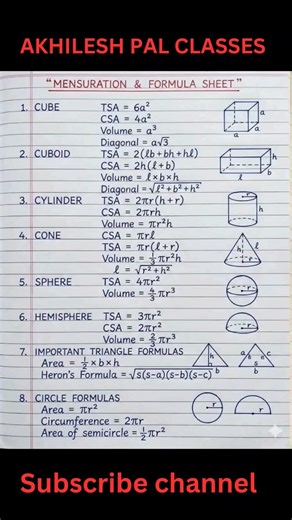 AKHILESH PAL CLASSES
"MENSURATION & FORMULA SHEET"
1. CUBE TSA = 6a²
CSA = 4a²
Volume = a³
Diagonal = a√3
a
a
a
2. CUBOID TSA = 2(lb+bh+hl)
CSA = 2h(l+b)
Volume = l×b×h
Diagonal = √l²+b²+h²
h
l
b
3. CYLINDER TSA = 2πr(h+r)
CSA = 2πrh
Volume = πr²h
h
4. CONE CSA = πrl
TSA = πr(l+r)
Volume = 1/3 πr²h
l = √r²+h²
h
l
r
5. SPHERE TSA = 4πr²
Volume = 4/3 πr³
r
6. HEMISPHERE TSA = 3πr²
CSA = 2πr²
Volume = 2/3 πr³
r
7. IMPORTANT TRIANGLE FORMULAS
Area = 1/2 × b × h
Heron's Formula = √s(s-a)(s-b)(s-c)
h
b
a
c
s
b
8. CIRCLE FORMULAS
Area = πr²
Circumference = 2πr
Area of semicircle = 1/2 πr²
r
r
Subscribe channel